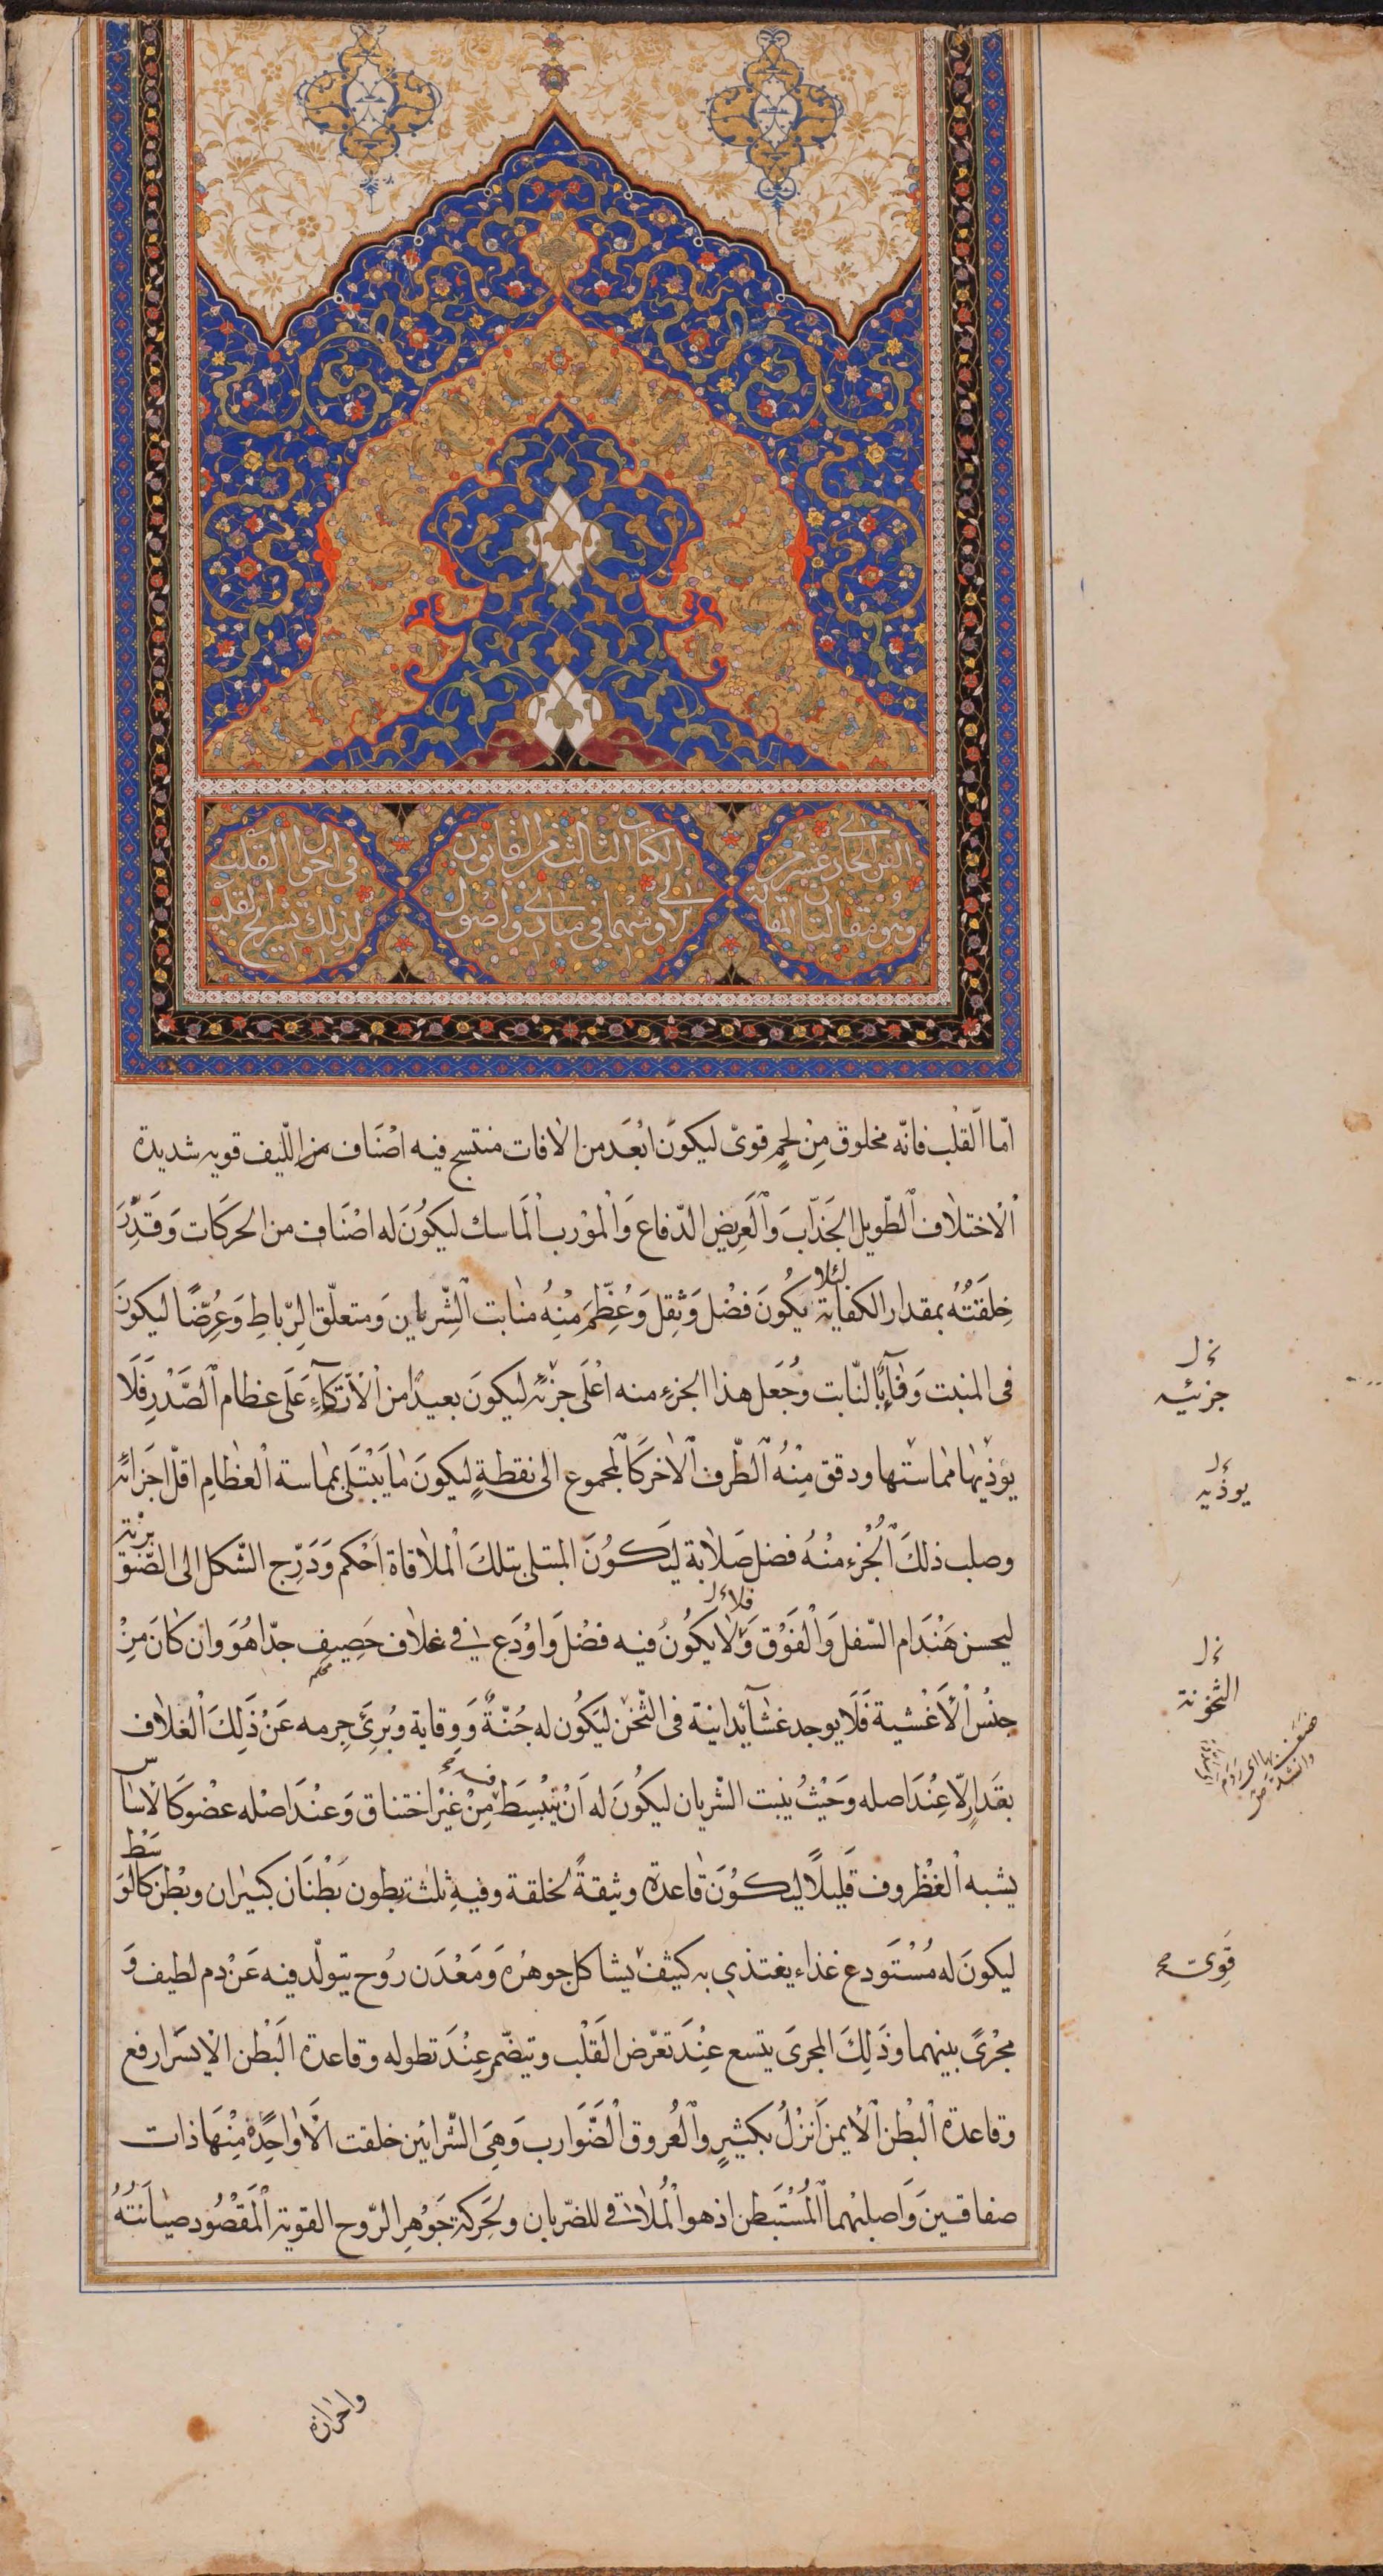 الفن الحادي عشر من
الكتاب الثالث من القانون
في احوال القلب
وهو مقالتان المقالة
الاولى منهما في مبادي واصول
لذلك تشريح القلب
امّا الْقلْب فانّه مخلوق مِنْ لحمٍ قوىّ ليكونَ ابْعَد من الاٰفات منتسج فيه اصْنَاف من اللّيف قويه شديدة
الْاختلاٰف الطّويل الجَذّابَ وَالْعَرِيض الدّفاع وَالْمَوْرب الْمَاسك ليكوُنَ له اصْنَاف من الحركَات وَقَدّرَ
خِلقَتُهُ بمقدار الكفاية لئلا يكُونَ فضْل وَثِقل وَعُظِّمَ مْنِهُ منابت الشّرايين وَمتعلّق الرّباطِ وَعُرِّضَا ليكونَ
فى المنبت وَقآءٌ بالنّابت وجُعَل هذا الجزء منه اعْلَى جزئه ليكونَ بعيدًا من الْاتّكآءِ عَلَى عظام الصَّدْرِ فَلَا
يؤذيها مماسّتها ودقق مِنْهُ الطّرف الاٰخر كَالمجموع الى نقطةٍ ليكونَ مَا يَبْتَلى بمماسة الْعظاٰمِ اقلّ اجزائه
وصلب ذلكَ الْجُزء منْهُ فضل صَلاٰبة ليَكوُنَ المبتلى بتلكَ الْملاٰقاة اَحْكم وَدَرِّج الشّكل الى الصّنوبريّة
ليحسن هَنْدَام السّفل وَالْفَوْق وَلاٰ يكُونُ فيه فضْل وَاوْدَع فى غلاٰف حَصِيفٍ جدّا هُوَ وان كانَ مِنْ
فلا ل
محكم
جنْسُ الْاَغْشية فَلَا يوجد غشآء يدانيه فى الثّخن ليَكُون له جُنّةٌ وَوِقاية وبُرِئَ جِرمه عَنْ ذَلِكَ الْغلاف
بقَدَارٍ الّا عِنْدَ اصله وَحَيْثُ ينبت الشّريان ليكُونَ له اَنْ يَنْبسِطَ فيه مِنْ غَيْر اختناق وَعنْدَ اصْله عضْو كَالاَساس
يشبه الْغضْروف قَليلًا ليكوُنَ قاٰعدة وثيقةً لخلقة وفيهِ ثلث بطون بَطْنَان كبيران وبطْن كالوَسْط
ليكونَ له مُسْتَودع غذاء يغتذي به كثيف يشاكل جوهرُهُ وَمَعْدَن رُوح يتولّد فيه عَنْ دم لطيف وَ
مجْرىً بينهما وذَلِكَ المجرىَ يتسع عِنْدَ تعرّض الْقَلْب وتيضّم عِنْدَ تطوله وقاعدة الْبَطْن الْايسَر ارفع
وقاعدة الْبَطْن الْايمن اَنزْلُ بكثيرٍ وَالْعُروق الْضّوَارب وَهِىَ الشّرائين خلقت الّا وَاحِدًة مِنْهَا ذات
صفاقينَ وَاصلبُهما الْمُسْتَبطن اذ هو الْمُلاٰقى للضّربان ولحَركة جَوْهرِ الرّوح القوية الْمَقْصُود صيَانَتُهُ
جزئيه
يوذيه
الثخونة
قَوِيَّ
واحرازه